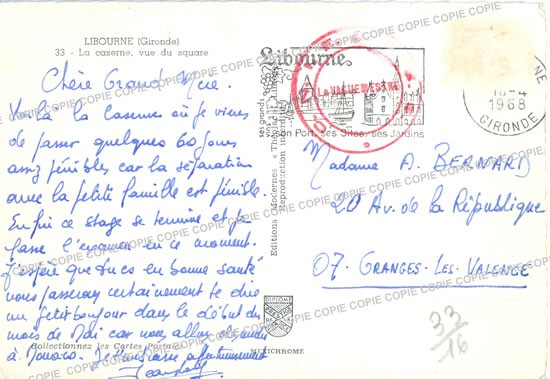 LIBOURNE (Gironde)
33 - La caserne, vue du square
Chère Grand Mère.
Voilà la caserne où je viens
de passer quelques 60 jours
assez pénibles car la séparation
avec la petite famille est pénible.
Enfin ce stage se termine et je
passe l'examen en ce moment.
J'espère que tu es en bonne santé
nous passerons certainement te dire
un petit bonjour dans le début du
mois de Mai car nous allons
à Monaco. Je t'embrasse affectueusement
Libourne
son Port, ses Sites, ses Jardins
LE VAGUEMESTRE
16-4
1968
GIRONDE
Madame A. BERNARD
20 Av. de la République
07. GRANGES-LES-VALENCE
Editions Modernes « Théojac »
Reproduction interdite
DIPLOME
Collectionnez les Cartes Postales
MEXICHROME
33/16
COPIE COPIE COPIE COPIE COPIE COPIE